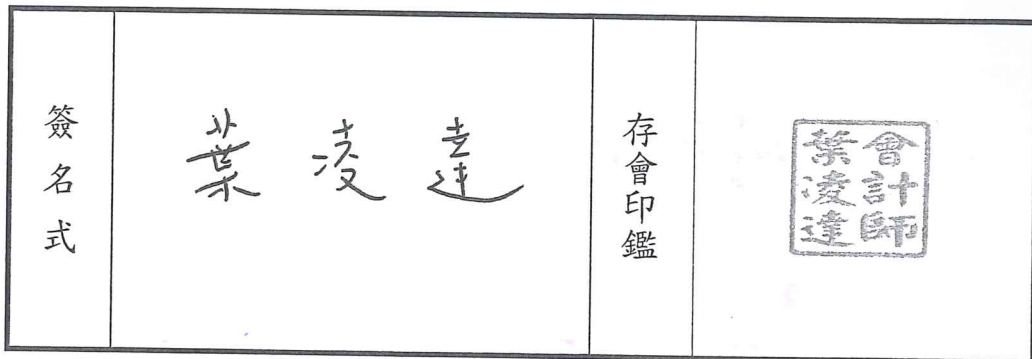 簽名式
葉凌達
存會印鑑
會計師
葉凌達